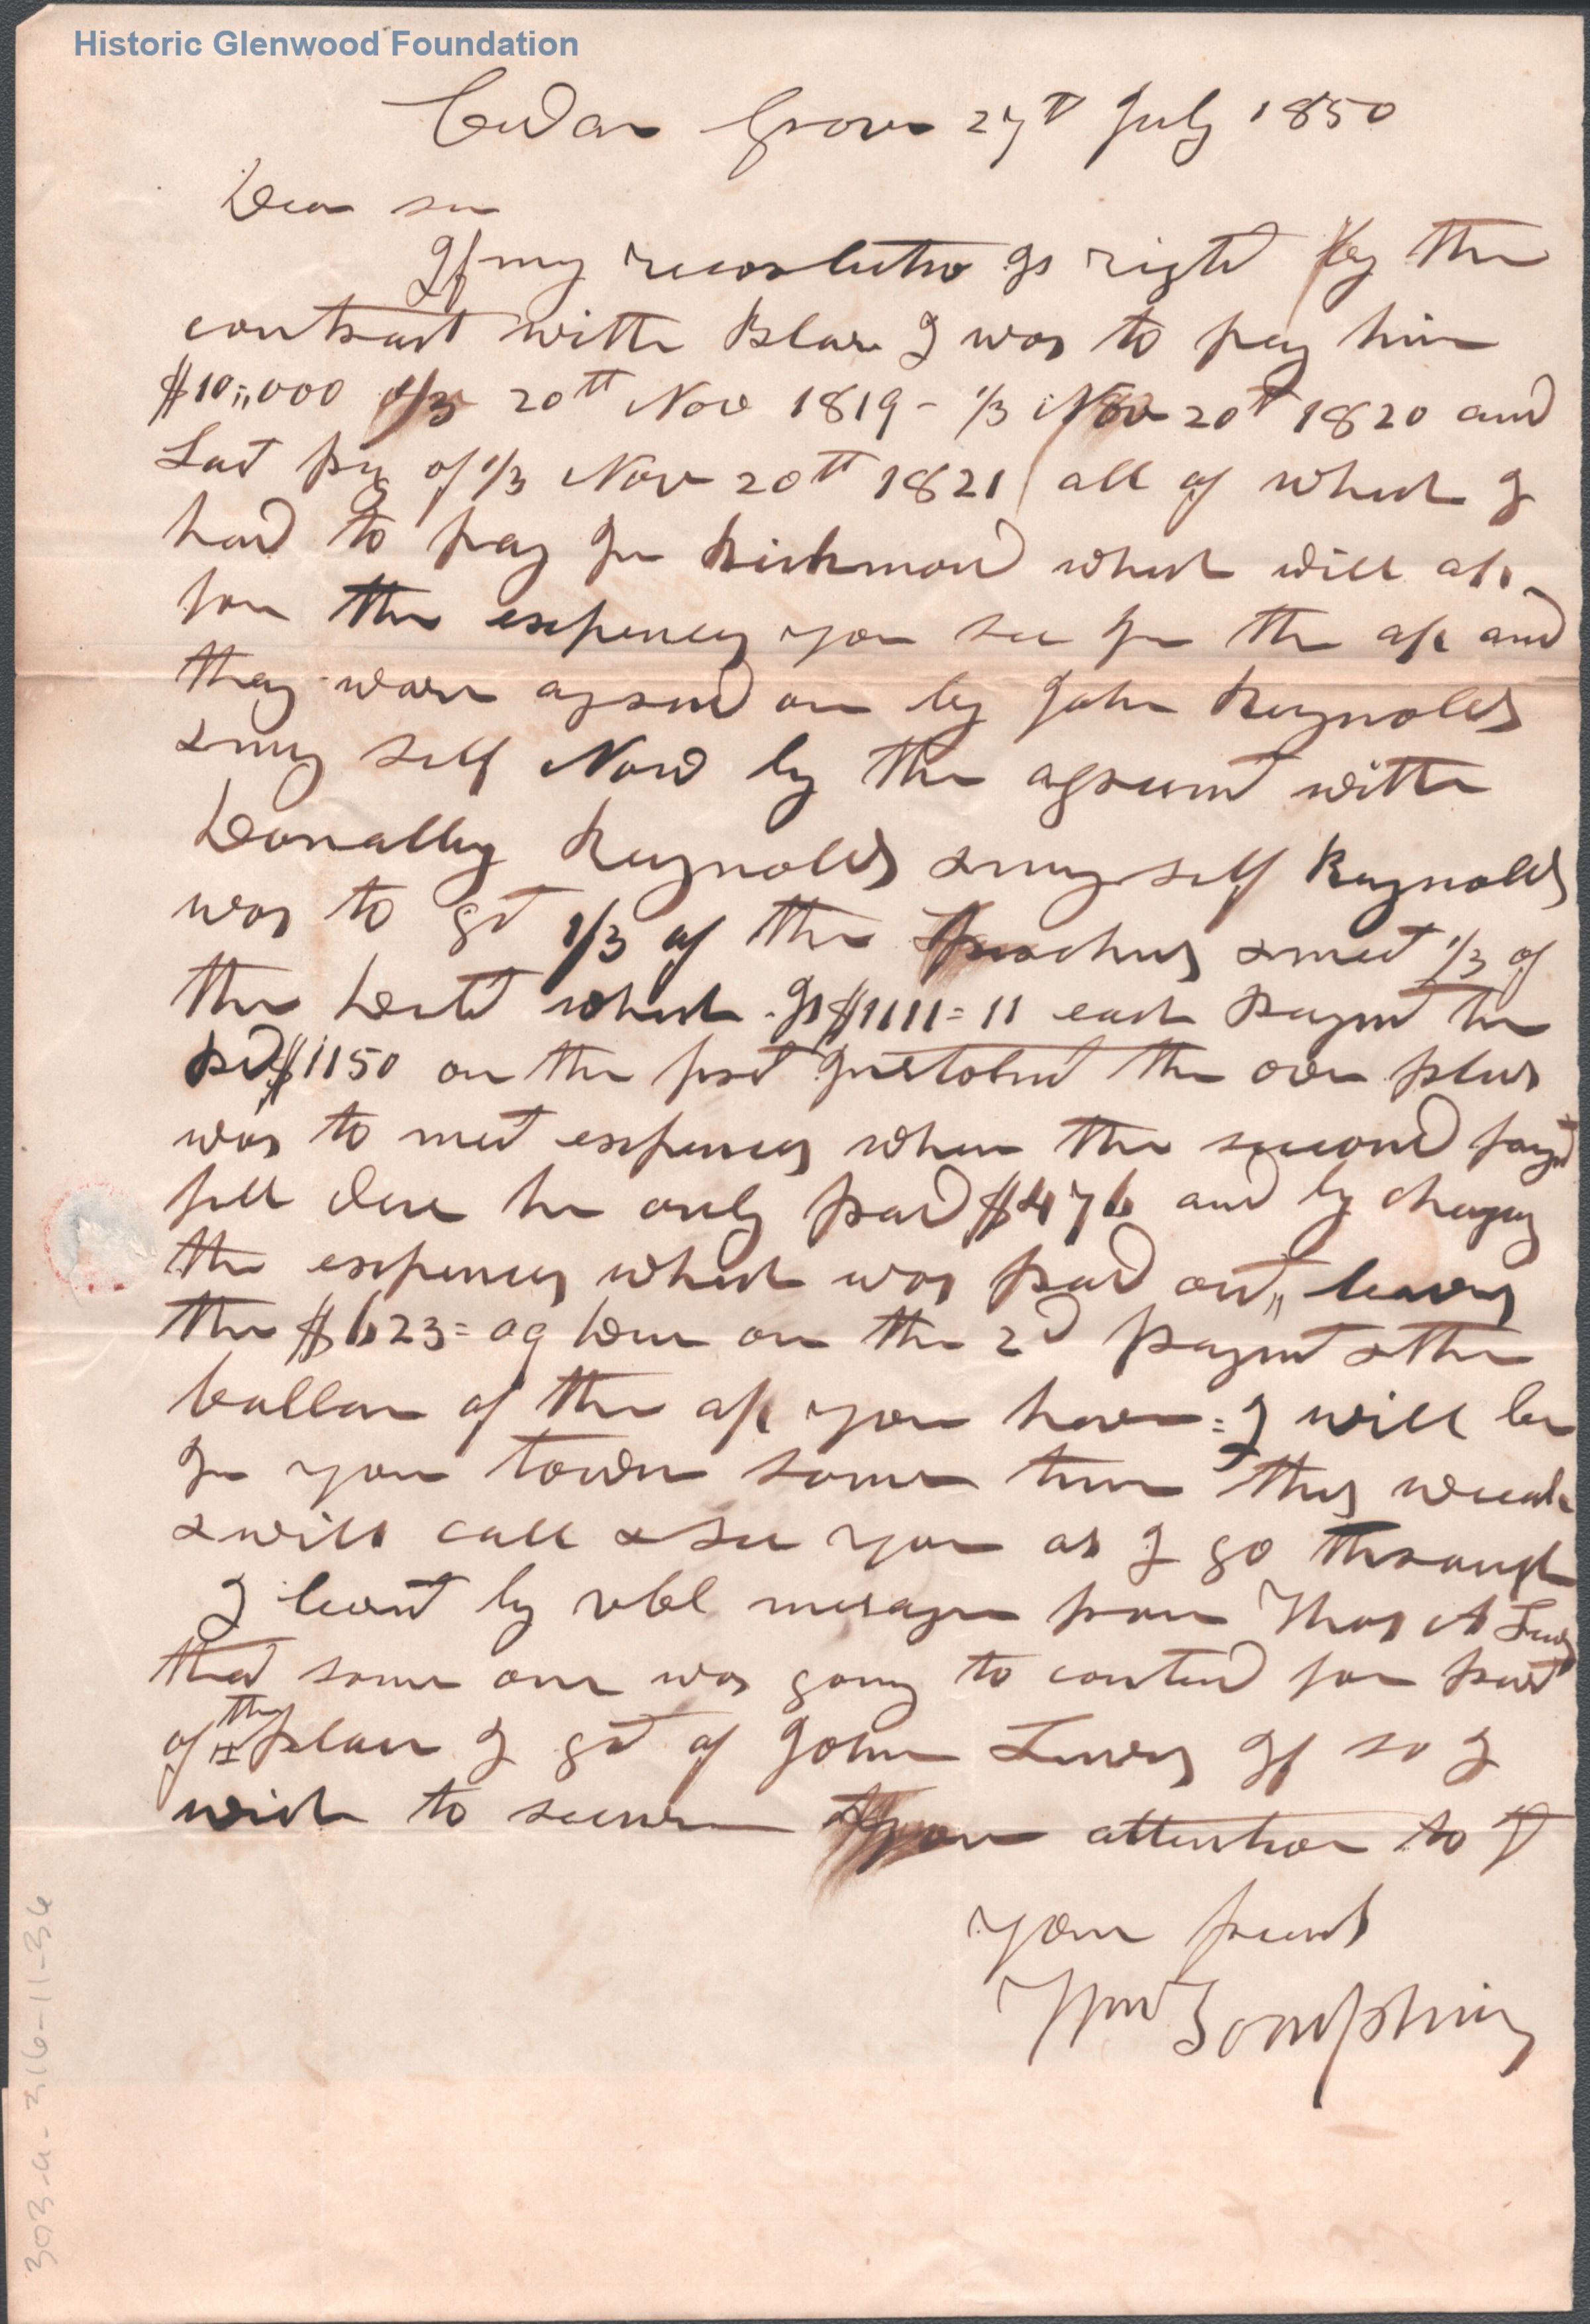 Historic Glenwood Foundation
Cedar Grove 27th July 1850
Dear sir
If my recorlectio Is right by the
contract with Blair I was to pay him
$10,,000 1/3 20th Nov 1819 - 1/3 Nov 20th 1820 and
Last pay of 1/3 Nov 20th 1821 all of which I
had to pay In Richmond which will
for the expences you see In the a/c and
they ware agread on by John Reynolds
& my self Now by the agreemt with
Donally Reynolds & my self Reynolds
was to get 1/3 of the & meet 1/3 of
the Debt which Is $1111=11 each paymt he
pd $1150 on the first Instolmt the over plus
was to meet expences when the second paymt
fell due he only paid $476 and by charging
the expences which was paid out,, leaves
the $623=09 due on the 2d paymt & the
ballance of the a/c you have = I will be
In your town some time this week
& will call & see you as I go through
I learnt by vbl mesage from Thos A Lewis
that some one was going to contend for part
of the place I got of John Lewis If so I
wish to secure your attention to It
your friend
Wm Tompkins
303-a-316-11-36